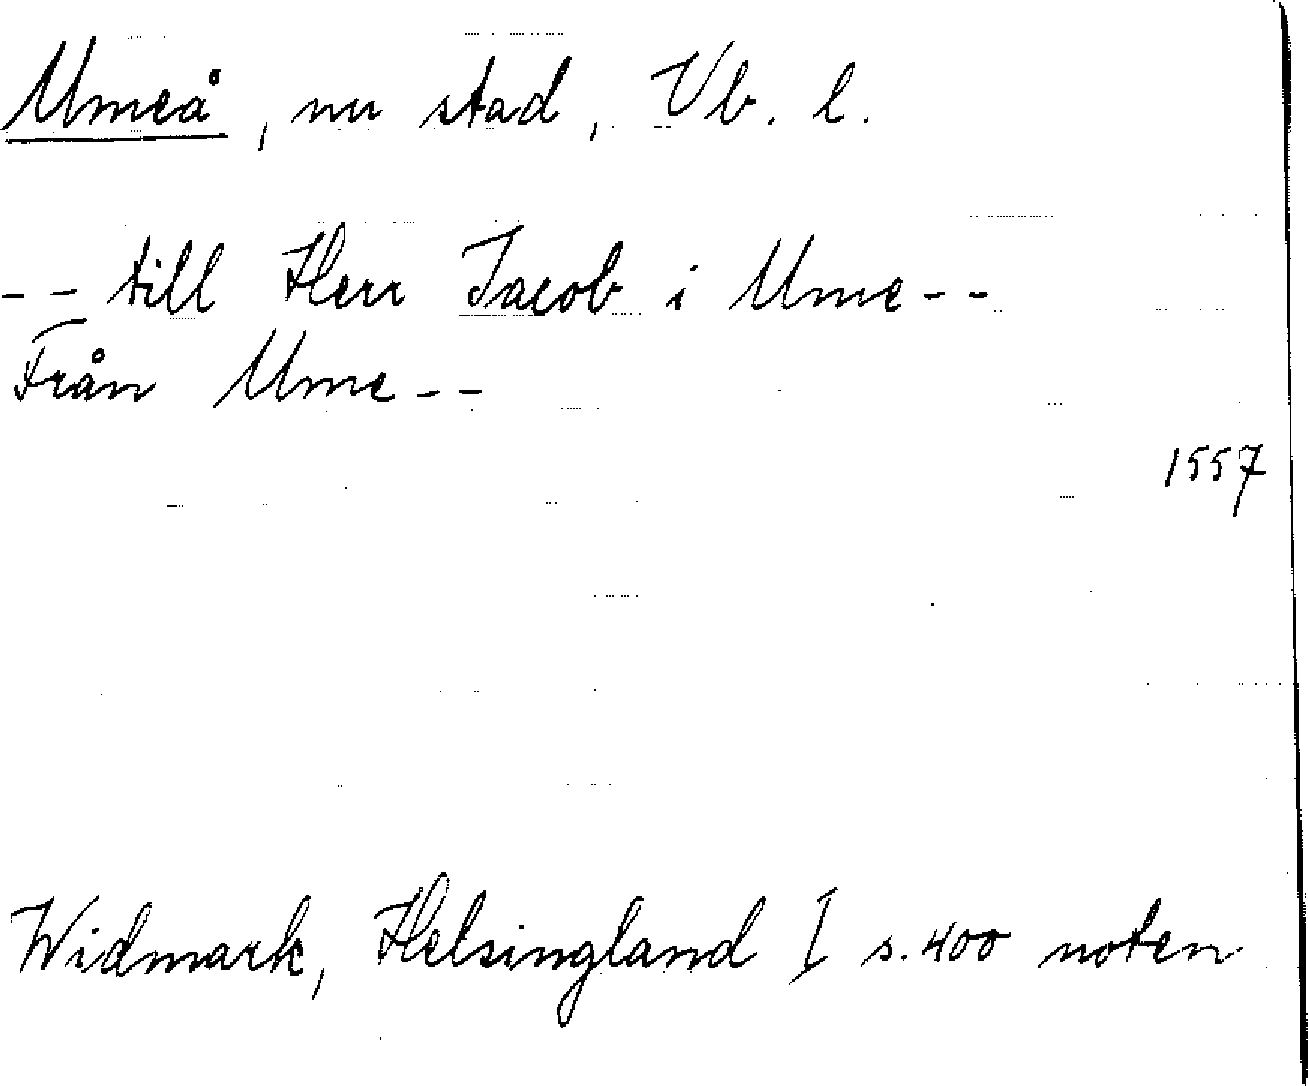 Umeå, nu stad, Vb. l.
-- till Herr Jacob i Ume--
Från Ume--
1557
Widmark, Helsingland I s. 400 noten